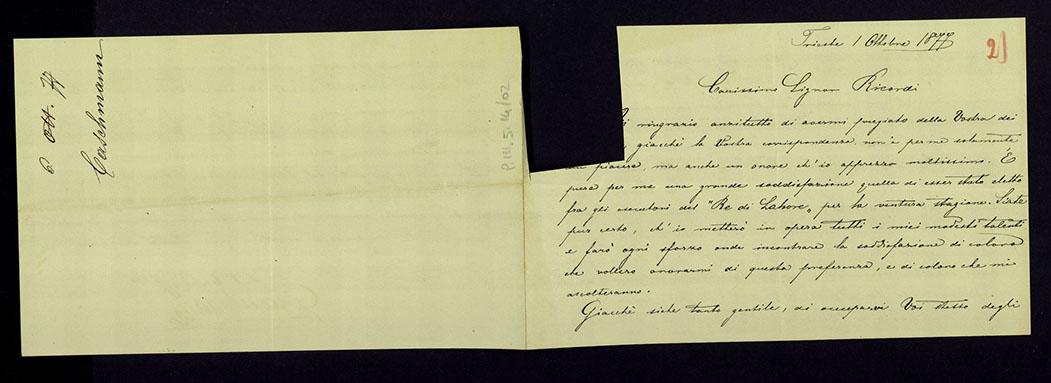 6 Ott. 77
Caschmann
P.III.5.14/02
Trieste 1 Ottobre 1877
2)
Carissimo Signor Ricordi
Vi ringrazio anzitutto di avermi pregiato della Vostra dei
giacchè la Vostra corrispondenza, non è per me solamente
un piacere, ma anche un onore ch'io apprezzo moltissimo. È
pure per me una grande soddisfazione quella di esser stato eletto
fra gli esecutori del "Re di Lahore„ per la ventura stagione. Siate
pur certo, ch'io metterò in opera tutti i miei modesti talenti
e farò ogni sforzo onde incontrare la soddisfazione di coloro
che vollero onorarmi di questa preferenza, e di coloro che mi
ascolteranno.
Giacchè siete tanto gentile, di occuparvi Voi stesso degli